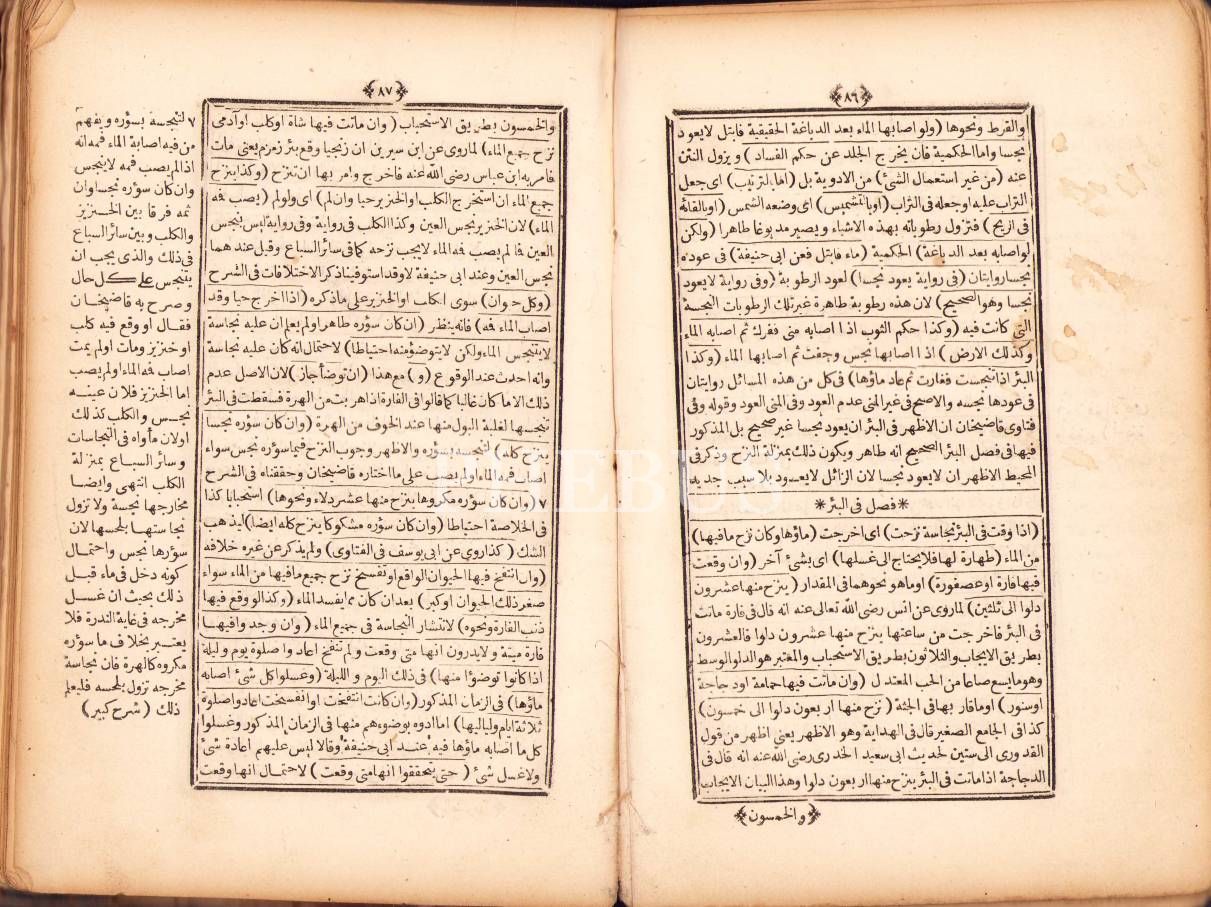 ﴿٨٦﴾
والقرط ونحوها (ولو اصابها الماء بعد الدباغة الحقيقية فابتل لا يعود
نجسا واما الحكمية فان يخرج الجلد عن حكم الفساد) ويزول النتن
عنه (من غير استعمال الشئ) من الادوية بل (اما بالتريب) اى جعل
التراب عليه اوجعله فى التراب (اوبالتشميس) اى وضعه الشمس (اوبالقائه
فى الريح) فتزول رطوباته بهذه الاشياء ويصير مدبوغا طاهرا (ولكن
لواصابه بعد الدباغة) الحكمية (ماء فابتل فعن ابى حنيفة) فى عوده
نجسا روايتان (فى رواية يعود نجسا) لعود الرطوبة (وفى رواية لايعود
نجسا وهوالصحيح) لان هذه رطوبة طاهرة غير تلك الرطوبات النجسة
التى كانت فيه (وكذا حكم الثوب اذا اصابه منى ففرك ثم اصابه الماء
وكذلك الارض) اذا اصابها نجس وجفت ثم اصابها الماء (وكذا
البئر اذا تنجست فغارت ثم عاد ماؤها) فى كل من هذه المسائل روايتان
فى عودها نجسه والاصح فى غيرالمنى عدم العود وفى المنى العود وقوله وفى
فتاوى قاضيخان ان الاظهر فى البئر ان يعود نجسا غير صحيح بل المذكور
فيها فى فصل البئر الصحيح انه طاهر ويكون ذلك بمنزلة النزح وذكر فى
المحيط الاظهر ان لايعود نجسا لان الزائل لايعود بلا سبب جديد
*فصل فى البئر*
(اذا وقعت فى البئر نجاسة نزحت) اى اخرجت (ماؤها وكان نزح مافيها)
من الماء (طهارة لها فلا يحتاج الى غسلها) اى بشئ آخر (وان وقعت
فيها فارة اوعصفورة) اوما هو نحوهما فى المقدار (ينزح منها عشرون
دلوا الى ثلثين) لماروى عن انس رضى الله تعالى عنه انه قال فى فارة ماتت
فى البئر فاخرجت من ساعتها ينزح منها عشرون دلوا فالعشرون
بطريق الايجاب والثلاثون بطريق الاستحباب والمعتبر هو الدلو الوسط
وهو مايسع صاعا من الحب المعتدل (وان ماتت فيها حمامة اودجاجة
اوسنور) اوماقار بها فى الجثة (نزح منها اربعون دلوا الى خمسون)
كذا فى الجامع الصغير قال فى الهداية وهو الاظهر يعنى اظهر من قول
القدورى الى ستين لحديث ابى سعيد الخدرى رضى الله عنه انه قال فى
الدجاجة اذا ماتت فى البئر ينزح منها اربعون دلوا وهذا البيان الايجاب
﴿والخمسون﴾
﴿٨٧﴾
والخمسون بطريق الاستحباب (وان ماتت فيها شاة اوكلب اوآدمى
نزح جميع الماء) لماروى عن ابن سيرين ان زنجيا وقع بئر زمزم يعنى مات
فامر به ابن عباس رضى الله عنه فاخرج وامر بها ان تنزح (وكذا ينزح
جميع الماء ان استخرج الكلب والخنزير حيا وان لم) اى ولولم (يصب فمه
الماء) لان الخنزير نجس العين وكذا الكلب فى رواية وفى رواية ليس بنجس
العين فالم يصب فمه الماء لايجب نزحه كما فى سائر السباع وقيل عندهما
نجس العين وعند ابى حنيفة لا وقد استوفينا ذكر الاختلافات فى الشرح
(وكل حيوان) سوى الكلب او الخنزير على ماذكره (اذا اخرج حيا وقد
اصاب الماء فمه) فانه ينظر (ان كان سؤره طاهرا ولم يعلم ان عليه نجاسة
لا يتنجس الماء ولكن لايتوضؤ منه احتياطا) لاحتمال انه كان عليه نجاسة
وانه احدث عند الوقوع (و) مع هذا (ان توضأ جاز) لان الاصل عدم
ذلك الا ما كان غالبا كما قالوا فى الفارة اذا هربت من الهرة فسقطت فى البئر
تنجسها لغلبة البول منها عند الخوف من الهرة (وان كان سؤره نجسا
ينزح كله) لتنجسه بسؤره والاظهر وجوب النزح فيما سؤره نجس سواء
اصاب فمه الماء اولم يصب على ما اختاره قاضيخان وحققناه فى الشرح
٧ (وان كان سؤره مكروها ينزح منها عشر دلاء ونحوها) استحبابا كذا
فى الخلاصة احتياطا (وان كان سؤره مشكوكا ينزح كله ايضا) ليذهب
الشك (كذا روى عن ابى يوسف فى الفتاوى) ولم يذكر عن غيره خلافه
(وان انتفخ فيها الحيوان الواقع اوتفسخ نزح جميع مافيها من الماء سواء
صغر ذلك الحيوان اوكبر) بعد ان كان مما يفسد الماء (وكذا لو وقع فيها
ذنب الفارة ونحوه) لانتشار النجاسة فى جميع الماء (وان وجد وافيها
فارة ميتة ولايدرون انها متى وقعت ولم تنتفخ اعادوا صلوة يوم وليلة
اذا كانوا توضؤا منها) فى ذلك اليوم والليلة (وغسلوا كل شئ اصابه
ماؤها) فى الزمان المذكور (وان كانت انتفخت اوانفسخت اعادوا صلوة
ثلاثة ايام ولياليها) اما ادوه بوضوءهم منها فى الزمان المذكور وغسلوا
كل ما اصابه ماؤها فيه عند ابى حنيفة وقالا ليس عليهم اعادة شئ
ولاغسل شئ (حتى يتحققوا انها متى وقعت) لاحتمال انها وقعت
٧ لتنجسه بسؤره ويفهم
من قيه اصابة الماء فمه انه
اذا لم يصب فمه لايتنجس
وان كان سؤره نجسا وان
ثمه فرقا بين الخنزير
والكلب وبين سائر السباع
فى ذلك والذى يجب ان
يتنجس على كل حال
وصرح به قاضيخان
فقال او وقع فيه كلب
او خنزير ومات اولم يمت
اصاب فمه الماء اولم يصب
اما الخنزير فلان عينه
نجس والكلب كذلك
اولان مأواه فى النجاسات
وسائر السباع بمنزلة
الكلب انتهى وايضا
مخارجها نجسة ولا تزول
نجاستها بلحسها لان
سؤرها نجس واحتمال
كونه دخل فى ماء قبل
ذلك بحيث ان غسل
مخرجه فى غاية الندرة فلا
يعتبر بخلاف ما سؤره
مكروه كالهرة فان نجاسة
مخرجه تزول بلحسه فليعلم
ذلك (شرح كبير)
PHEBUS